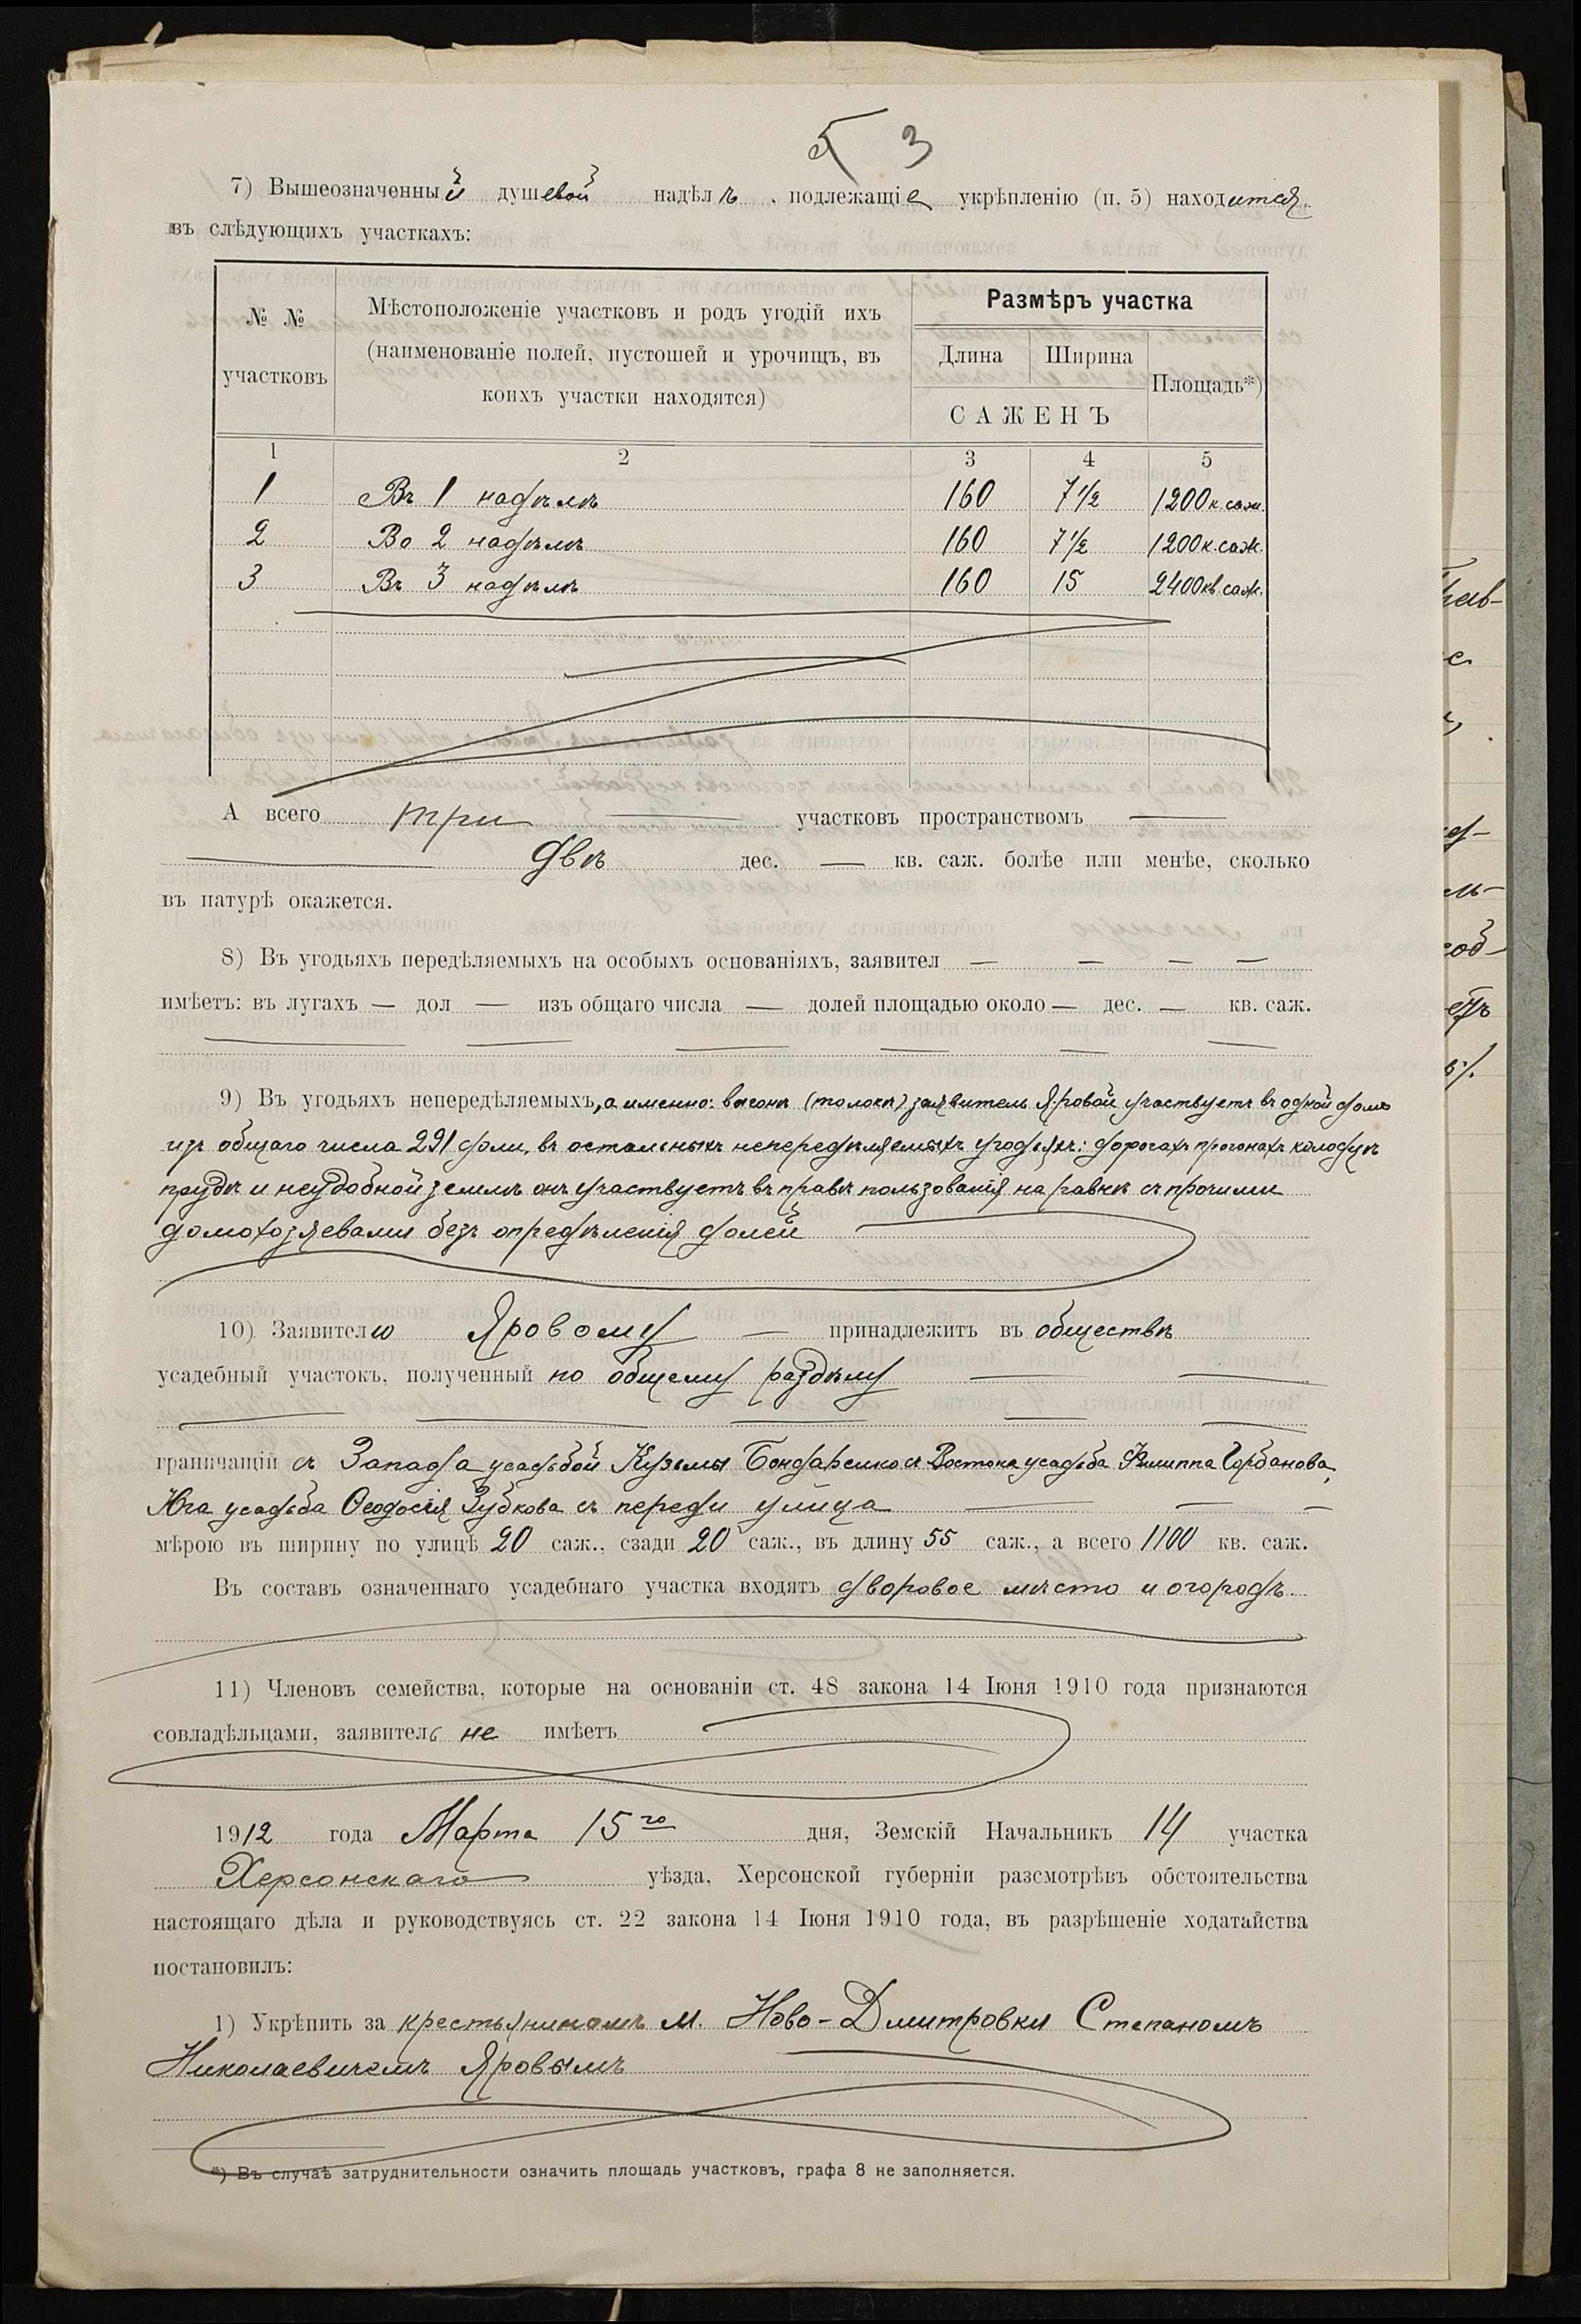 5 3
7) Вышеозначенный душевой надѣлъ, подлежащіе укрѣпленію (п. 5) находится
въ слѣдующихъ участкахъ:
№ № участковъ
Мѣстоположеніе участковъ и родъ угодій ихъ
(наименованіе полей, пустошей и урочищъ, въ
коихъ участки находятся)
Размѣръ участка
Длина Ширина Площадь*)
САЖЕНЪ
1 2 3 4 5
1 Въ 1 надѣлѣ 160 7 1/2 1200 к. саж.
2 Во 2 надѣлѣ 160 7 1/2 1200 к. саж.
3 Въ 3 надѣлѣ 160 15 2400 кв саж.
А всего три — участковъ пространствомъ —
— двѣ дес. — кв. саж. болѣе или менѣе, сколько
въ натурѣ окажется.
8) Въ угодьяхъ передѣляемыхъ на особыхъ основаніяхъ, заявител — — — —
имѣетъ: въ лугахъ — дол — изъ общаго числа — долей площадью около — дес. — кв. саж.
9) Въ угодьяхъ непередѣляемыхъ, а именно: выгонѣ (толокѣ) заявитель Яровой участвуетъ въ одной долѣ
изъ общаго числа 291 доли, въ остальныхъ непередѣляемыхъ угодьяхъ: дорогахъ прогонахъ колодцѣ
прудѣ и неудобной землѣ онъ участвуетъ въ правѣ пользованія на равнѣ съ прочими
домохозяевами безъ опредѣленія долей
10) Заявителю Яровому — принадлежитъ въ обществѣ
усадебный участокъ, полученный по общему раздѣлу
граничащій съ Запада усадьбой Кузьмы Бондаренко съ Востока усадьба Филиппа Горбанова,
Юга усадьба Ѳеодосія Зубкова съ переди улица
мѣрою въ ширину по улицѣ 20 саж., сзади 20 саж., въ длину 55 саж., а всего 1100 кв. саж.
Въ составъ означеннаго усадебнаго участка входятъ дворовое мѣсто и огородъ.
11) Членовъ семейства, которые на основаніи ст. 48 закона 14 Іюня 1910 года признаются
совладѣльцами, заявитель не имѣетъ
1912 года Марта 15го дня, Земскій Начальникъ 14 участка
Херсонскаго уѣзда, Херсонской губерніи разсмотрѣвъ обстоятельства
настоящаго дѣла и руководствуясь ст. 22 закона 14 Іюня 1910 года, въ разрѣшеніе ходатайства
постановилъ:
1) Укрѣпить за крестьяниномъ м. Ново-Дмитровки Степаномъ
Николаевичемъ Яровымъ
*) Въ случаѣ затруднительности означить площадь участковъ, графа 8 не заполняется.